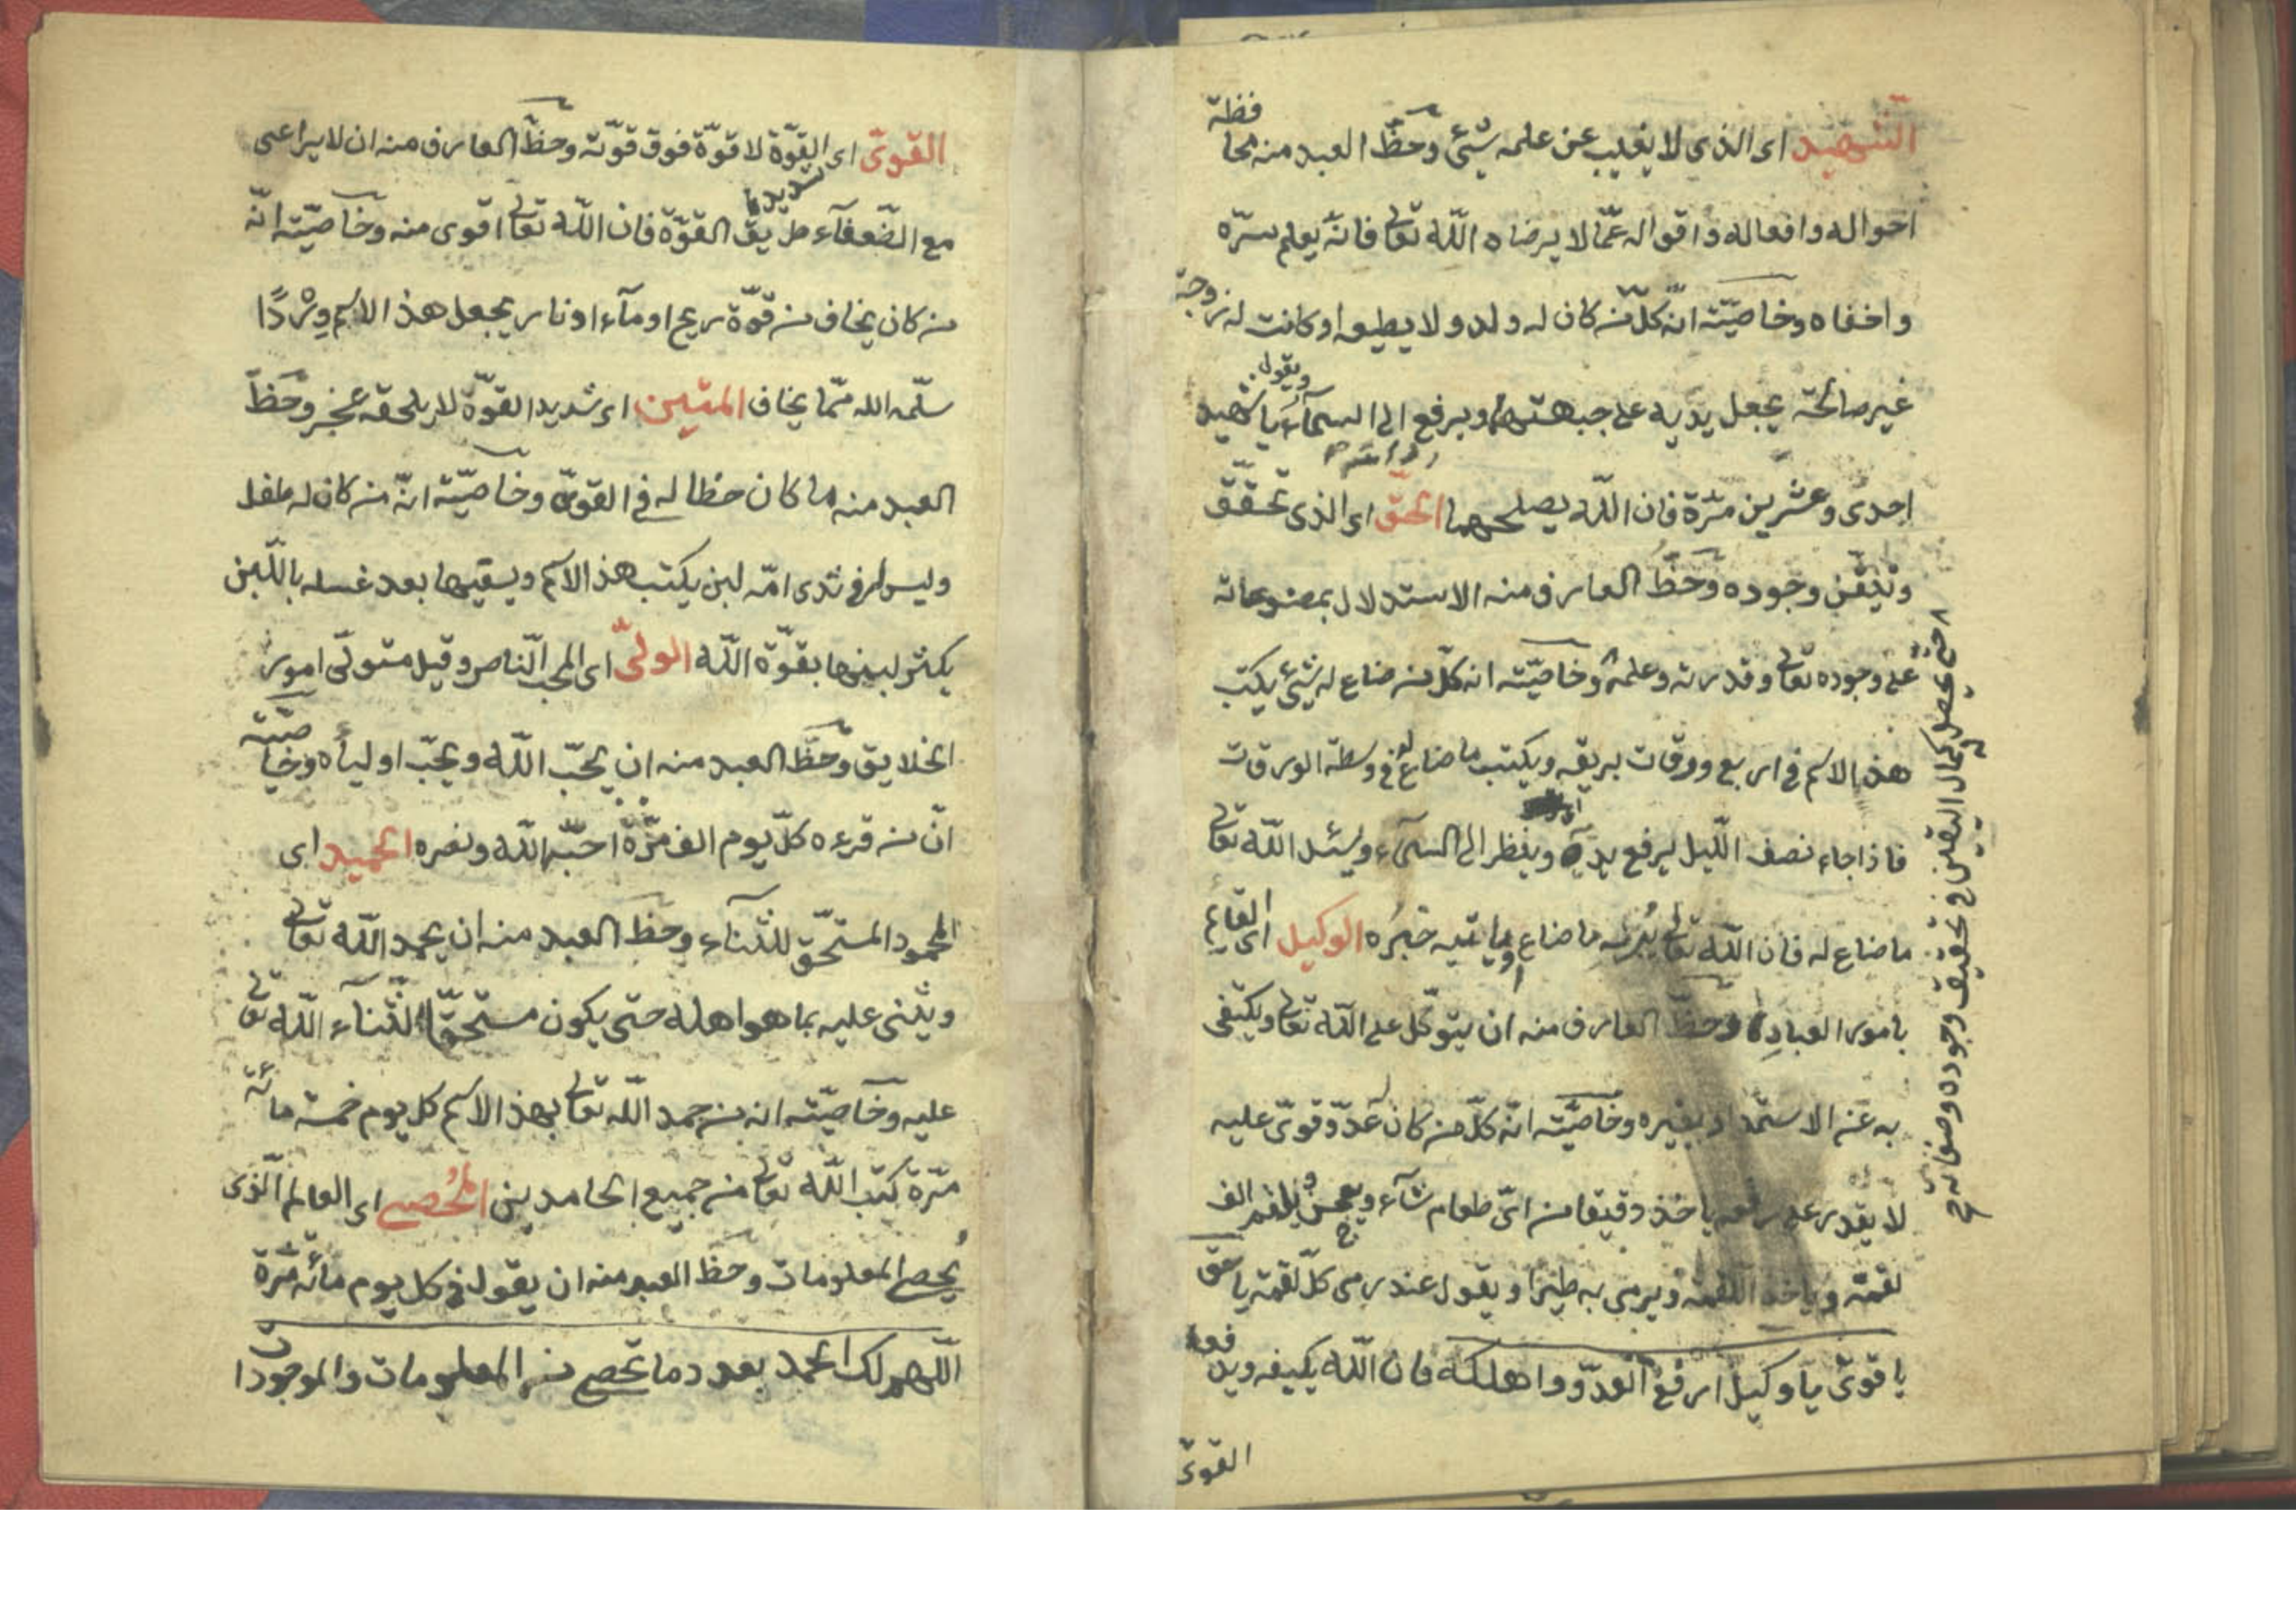 الشهيد اى الذى لا يغيب عن علمه شئ وحظّ العبد منه محا
فظة
احواله وافعاله واقواله عمّا لا يرضاه اللّه تعالى فانّه يعلم سرّه
واخفاه وخاصيّته انّه كلّ من كان له ولد ولا يطيعه او كانت له زوجة
غير صالحة يجعل يديه على جبهتهما ويرفع الى السمآء يا شهيد
ويقول
احدى وعشرين مرّة فان اللّه يصلحهما الحقّ اى الذى تحقّق
وتيقّن وجوده وحظّ العارف منه الاستدلال بمصنوعاته
على وجوده تعالى وقدرته وعلمه وخاصيّته انه كلّ من ضاع له شئ يكتب
هذا الاسم فى اربع وورقات بريقه ويكتب ما ضاع له فى وسطة الورقات
فاذا جاء نصف اللّيل يرفع يديه وينظر الى السمآء ويسئل اللّه تعالى
ما ضاع له فان اللّه تعالى ما ضاع او ياتيه خبره الوكيل اى القايم
بامور العباد وحظّ العارف منه ان يتوكّل على اللّه تعالى ويكتفى
به عن الاستمداد بغيره وخاصيّته انّه كلّ من كان له عدوّ قوىّ عليه
لا يقدر على ياخذ دقيقا من اىّ طعام شآء ويعجن الف
لقمة وياخذ اللقمة ويرمى به طيرا ويقول عند رمى كلّ لقمة يا حق
يا قوىّ يا وكيل ارفع العدوّ واهلكه فان اللّه يكيفه ويد
فعه
القوى
حتى يحصل كمال اليقين فى تحقيق وجوده وصفاته
القوىّ اى القوّة لا قوّة فوق قوّته وحظّ العارف منه ان لا يراعى
شديد
مع الضّعفآء طريق القوّة فان اللّه تعالى اقوى منه وخاصيّته انّه
من كان يخاف من قوّة ريح او مآء او نار يجعل هذا الاسم وِرْدًا
سلّمه الله ممّا يخاف المتين اى شديد القوّة لا يلحقه عجز وحظّ
العبد منه ما كان حظا له فى القوىّ وخاصيّته انّه من كان له طفل
وليس له فى ثدى امّه لبن يكتب هذا الاسم ويسقيها بعد غسله باللّبن
يكثر لبنها بقوّة اللّه الولىّ اى المحبّ النّاصر وقيل متولّى امور
الخلايق وحظّ العبد منه ان يحبّ اللّه ويحبّ اولياءه وخا
صيّته
انّ من قرءه كلّ يوم الف مرّة احبّه اللّه ونصره الحميد اى
المحمود المستحقّ للثّنآء وحظّ العبد منه ان يحمد اللّه تعالى
ويثنى عليه بما هو اهله حتى يكون مستحقّا لثنآء اللّه تعالى
عليه وخاصيّته انه من حمد اللّه تعالى بهذا الاسم كل يوم خمسة مائة
مرّة كتبه اللّه تعالى من جميع الحامدين المُحصى اى العالم الّذى
يُحصى المعلومات وحظّ العبد منه ان يقول فى كل يوم مائة مرّة
اللّهم لك الحمد بعدد ما تحصى من المعلومات والموجودات